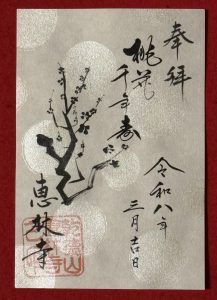 奉拝
桃花千年寿
令和八年
三月吉日
恵林寺